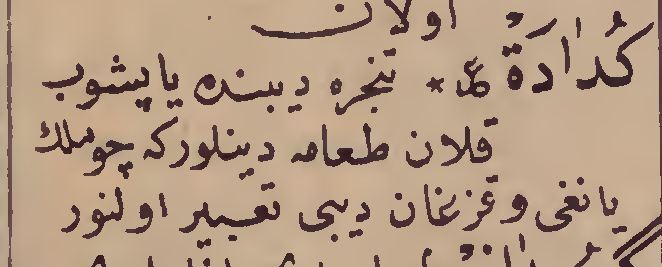 اولان
كُدَادَةْ ع * تنجره ديبنده ياپشوب
قلان طعامه دينلور كه چوملك
يانغى وقزغان ديبى تعبير اولنور